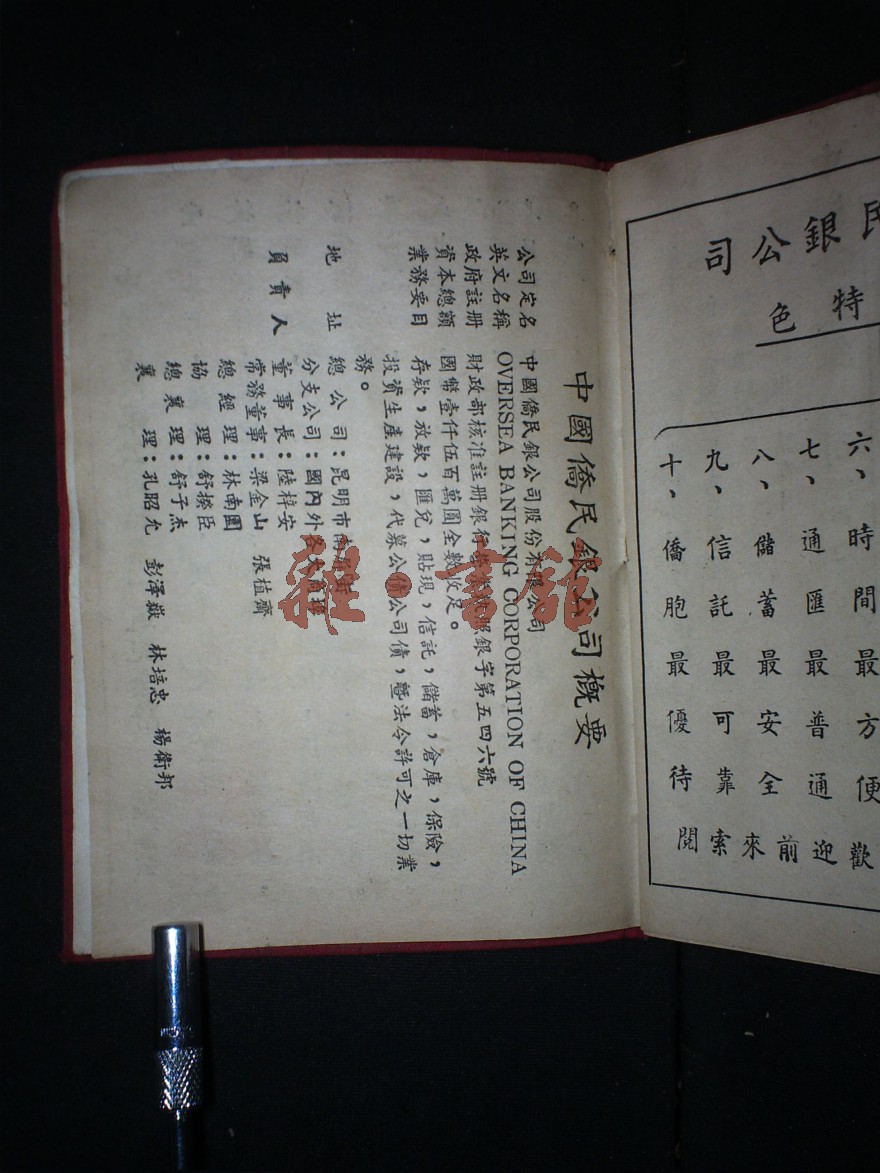 民銀公司
特色
六、時間最方便歡
七、通匯最普通迎
八、儲蓄最安全前來
九、信託最可靠索
十、僑胞最優待閱
中國僑民銀公司概要
公司定名 中國僑民銀公司股份有限公司
英文名稱 OVERSEA BANKING CORPORATION OF CHINA
政府註册 財政部核准註册銀行營業執照銀字第五四六號
資本總額 國幣壹仟伍百萬圓全數收足。
業務要目 存欵，放欵，匯兌，貼現，信託，儲蓄，倉庫，保險，
投資生產建設，代募公債公司債，曁法令許可之一切業
務。
地址 總公司：昆明市南屏街
分支公司：國內外各大商埠
負責人 董事長：陸梓安
常務董事：梁金山 張植齋
總經理：林南園
協理：舒揆臣
總襄理：舒子杰
襄理：孔昭允 彭澤嶽 林培忠 楊衛邦
雜·書館